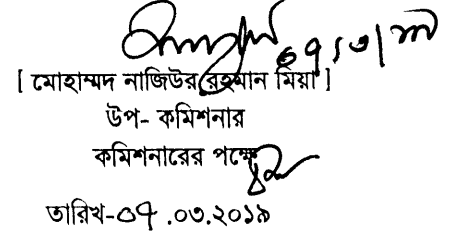 ০৭/৩/১৯
[ মোহাম্মদ নাজিউর রেহমান মিয়া ]
উপ- কমিশনার
কমিশনারের পক্ষে
তারিখ-০৭.০৩.২০১৯